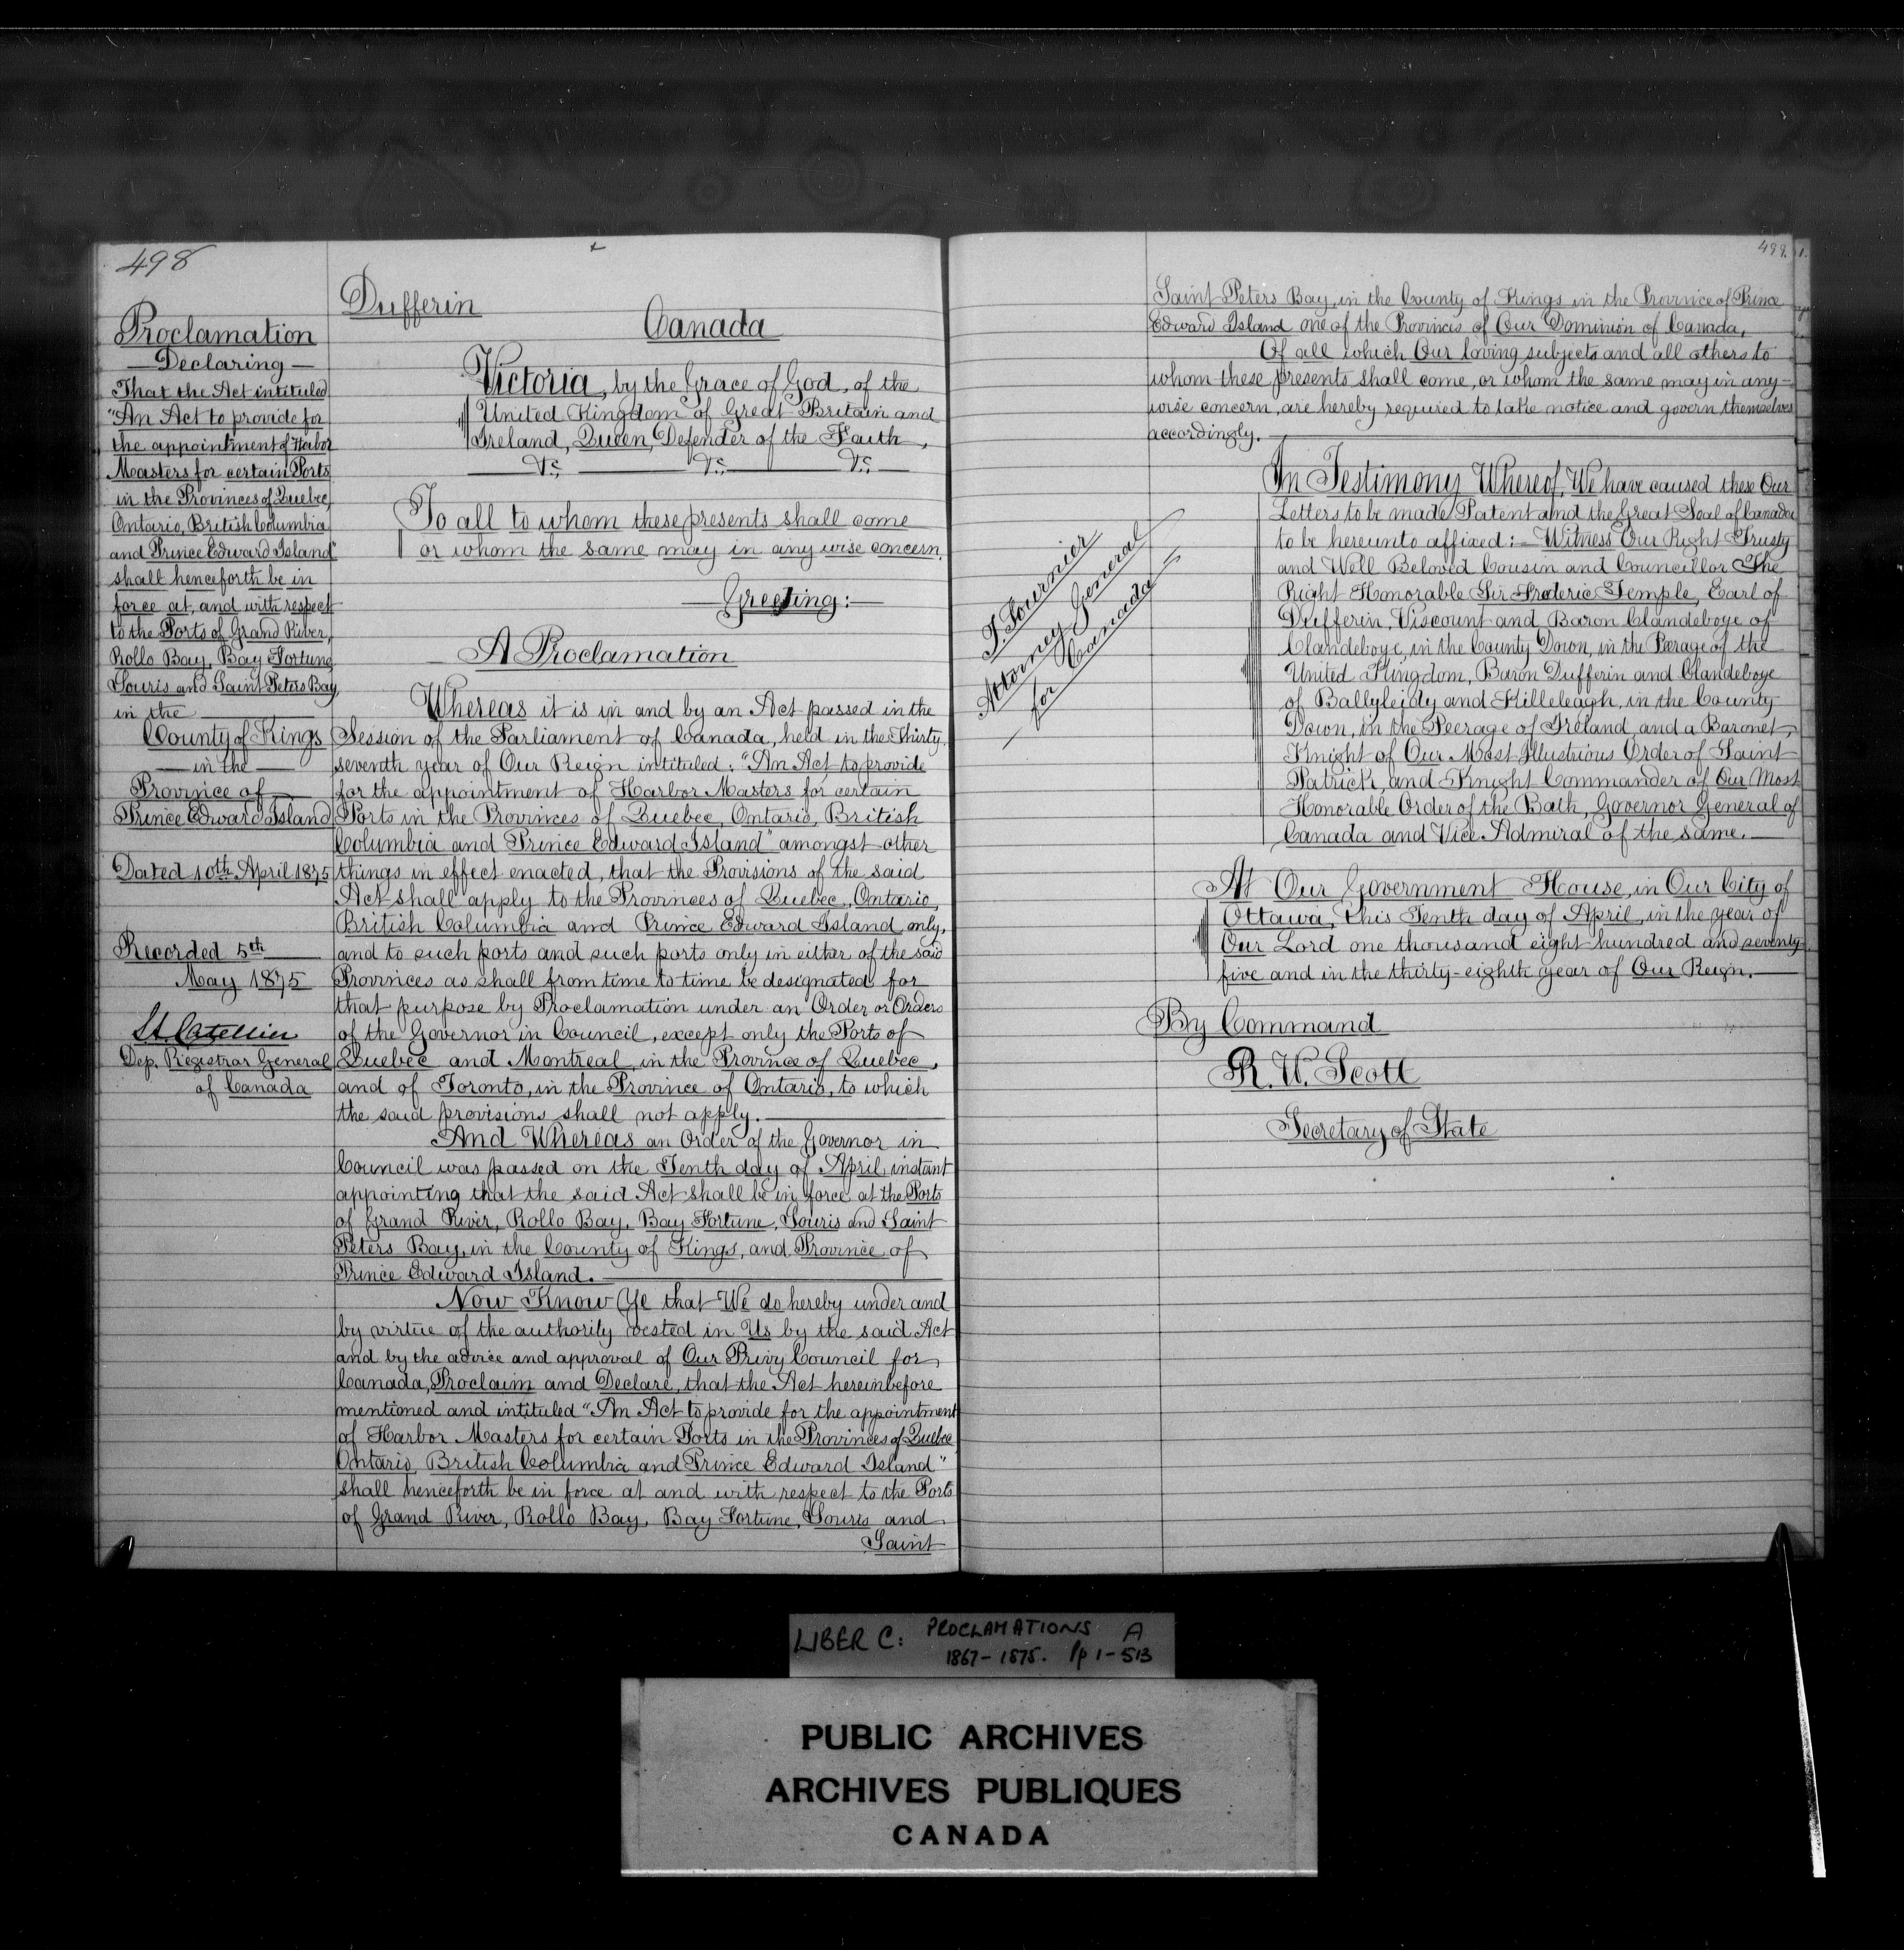 498
Proclamation
— Declaring —
That the Act intituled
"An Act to provide for
the appointment of Harbor
Masters for certain Ports
in the Provinces of Quebec,
Ontario, British Columbia
and Prince Edward Island"
shall henceforth be in
force at, and with respect
to the Ports of Grand River,
Rollo Bay, Bay Fortune,
Souris and Saint Peters Bay,
in the
County of Kings
— in the —
Province of
Prince Edward Island
Dated 10th April 1875
Recorded 5th
May 1875
Dep. Registrar General
of Canada
Dufferin
Canada
Victoria, by the Grace of God, of the
United Kingdom of Great Britain and
Ireland, Queen, Defender of the Faith,
&c &c &c
To all to whom these presents shall come
or whom the same may in any wise concern,
— Greeting: —
A Proclamation
Whereas it is in and by an Act passed in the
Session of the Parliament of Canada, held in the Thirty
seventh year of Our Reign intituled: "An Act to provide
for the appointment of Harbor Masters for certain
Ports in the Provinces of Quebec, Ontario, British
Columbia and Prince Edward Island" amongst other
things in effect enacted, that the Provisions of the said
Act shall apply to the Provinces of Quebec, Ontario,
British Columbia and Prince Edward Island only,
and to such ports and such ports only in either of the said
Provinces as shall from time to time be designated for
that purpose by Proclamation under an Order or Orders
of the Governor in Council, except only the Ports of
Quebec and Montreal, in the Province of Quebec,
and of Toronto, in the Province of Ontario, to which
the said provisions shall not apply.
And Whereas an Order of the Governor in
Council was passed on the Tenth day of April, instant
appointing that the said Act shall be in force at the Ports
of Grand River, Rollo Bay, Bay Fortune, Souris and Saint
Peters Bay, in the County of Kings, and Province of
Prince Edward Island.
Now Know Ye that We do hereby under and
by virtue of the authority vested in Us by the said Act
and by the advice and approval of Our Privy Council for
Canada, Proclaim and Declare, that the Act hereinbefore
mentioned and intituled "An Act to provide for the appointment
of Harbor Masters for certain Ports in the Provinces of Quebec
Ontario, British Columbia and Prince Edward Island"
shall henceforth be in force at and with respect to the Ports
of Grand River, Rollo Bay, Bay Fortune, Souris and
Saint
499.
Saint Peters Bay, in the County of Kings in the Province of Prince
Edward Island one of the Provinces of Our Dominion of Canada,
Of all which Our loving subjects and all others to
whom these presents shall come, or whom the same may in any-
wise concern, are hereby required to take notice and govern themselves
accordingly.
In Testimony Whereof, We have caused these Our
Letters to be made Patent and the Great Seal of Canada
to be hereunto affixed: — Witness Our Right Trusty
and Well Beloved Cousin and Councillor The
Right Honorable Sir Frederic Temple, Earl of
Dufferin, Viscount and Baron Clandeboye of
Clandeboye, in the County Down, in the Peerage of the
United Kingdom, Baron Dufferin and Clandeboye
of Ballyleidy and Killeleagh, in the County
Down, in the Peerage of Ireland, and a Baronet,
Knight of Our Most Illustrious Order of Saint
Patrick, and Knight Commander of Our Most
Honorable Order of the Bath, Governor General of
Canada and Vice Admiral of the same.
At Our Government House, in Our City of
Ottawa, this Tenth day of April, in the year of
Our Lord one thousand eight hundred and seventy-
five and in the thirty-eighth year of Our Reign.
By Command
R. W. Scott
Secretary of State
T. Fournier
Attorney General
for Canada
LIBER C: PROCLAMATIONS A
1867-1875. pp 1-513
PUBLIC ARCHIVES
ARCHIVES PUBLIQUES
CANADA